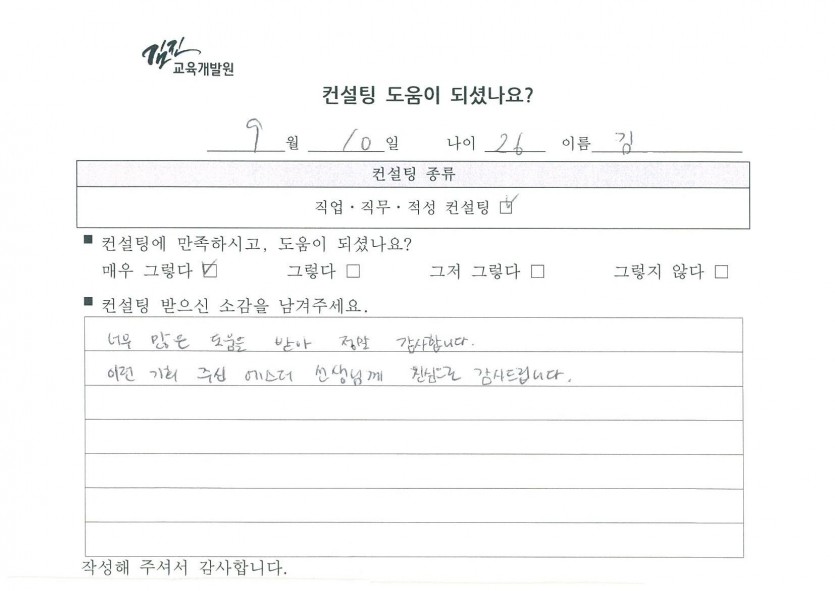 김진
교육개발원
컨설팅 도움이 되셨나요?
9 월 10 일 나이 26 이름 김
컨설팅 종류
직업·직무·적성 컨설팅 ☑
■ 컨설팅에 만족하시고, 도움이 되셨나요?
매우 그렇다 ☑ 그렇다 □ 그저 그렇다 □ 그렇지 않다 □
■ 컨설팅 받으신 소감을 남겨주세요.
너무 많은 도움을 받아 정말 감사합니다.
이런 기회 주신 에스더 선생님께 진심으로 감사드립니다.
작성해 주셔서 감사합니다.